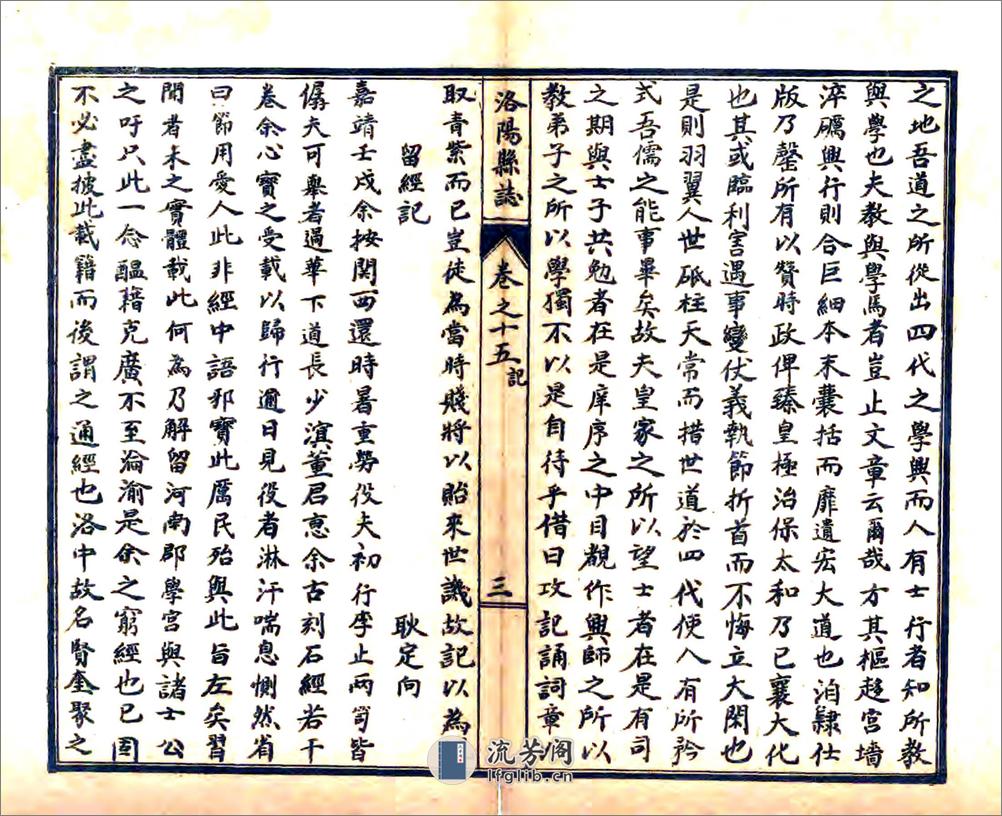 之地吾道之所從出四代之學興而人有士行者知所教
與學也夫教與學焉者豈止文章云爾哉方其樞趍宮墻
淬礪興行則合巨細本末囊括而靡遺宏大道也洎隸仕
版乃罄所有以贊時政俾臻皇極治保太和乃已襄大化
也其或臨利害遇事變伏義執節折首而不悔立大閑也
是則羽翼人世砥柱天常而措世道於四代使人有所矜
式吾儒之能事畢矣故夫皇家之所以望士者在是有司
之期與士子共勉者在是庠序之中目覩作興師之所以
教弟子之所以學獨不以是自待乎借曰攻記誦詞章以
洛陽縣誌
卷之十五 記
三
取青紫而已豈徒為當時賤將以貽來世譏故記以為
留經記
耿定向
嘉靖壬戌余按関西還時暑重勞役夫初行李止兩笥皆
僝夫可舉者過華下道長少滇董君恵余古刻石經若干
卷余心寶之受載以歸行邇日見役者淋汗喘息惻然省
曰節用愛人此非經中語邪寶此厲民殆與此旨左矣習
閒者木之實體載此何為乃解留河南郡學宮與諸士公
之吁只此一念醞藉克廣不至淪渝是余之窮經也已固
不必盡披此載籍而後謂之通經也洛中故名賢奎聚之
流芳阁
lfglib.cn